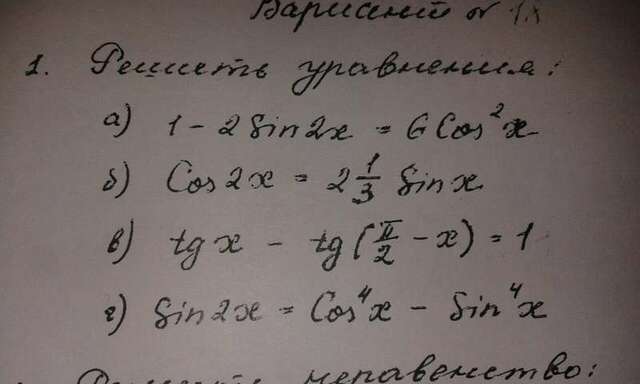 Вариант №
1. Решить уравнения:
а) 1 - 2 Sin2x = 6 Cos²x
б) Cos2x = 2 1/3 Sinx
в) tg x - tg(π/2 - x) = 1
г) Sin2x = Cos⁴x - Sin⁴x
Решить неравенство: